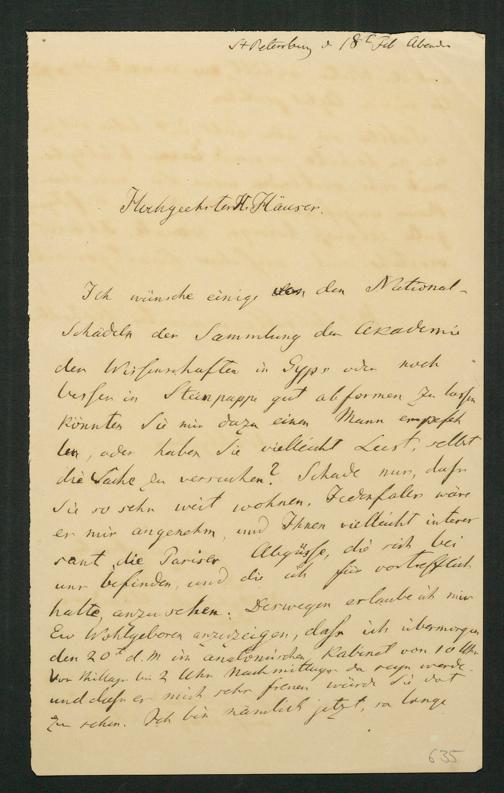 St Petersburg d 18t Feb Abends
Hochgeehrter H. Häuser.
Ich wünsche einige von den National-
Schädeln der Sammlung der Akademie
der Wissenschaften in Gyps oder noch
besser in Steinpappe gut abformen zu lassen
Könnten Sie mir dazu einen Mann empfeh
len, oder haben Sie vielleicht Lust, selbst
die Sache zu versuchen? Schade nur, dass
Sie so sehr weit wohnen. Jedenfalls wäre
es mir angenehm, und Ihnen vielleicht interes
sant die Pariser Abgüsse, die sich bei
uns befinden, und die ich für vortrefflich
halte anzusehen. Deswegen erlaube ich mir
Ew Wohlgeboren anzuzeigen, dass ich übermorgen
den 20t d. M im anatomischen Kabinet von 10 Uhr
Vor Mittags bis 2 Uhr Nachmittags da seyn werde
und dass es mich sehr freuen würde Sie dort
zu sehen. Ich bin nämlich jetzt, so lange
635